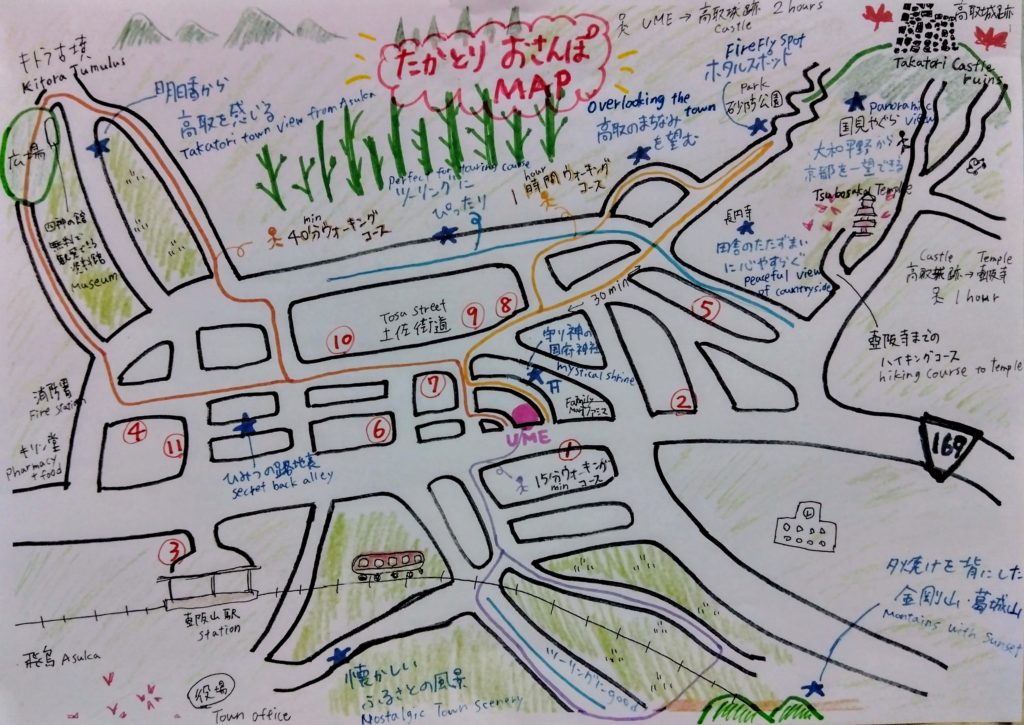 たかとり おさんぽ
MAP
UME → 高取城跡 2 hours
Castle
高取城跡
Takatori Castle
ruins
キトラ古墳
Kitora Tumulus
広場
四神の館
無料で
観覧できる
資料館
Museum
明日香から
高取を感じる
Takatori town view from Asuka
Firefly Spot
ホタルスポット
Park
砂防公園
Overlooking the
town
高取のまちなみ
を望む
Panoramic
view
国見やぐら
大和平野から
京都を一望できる
Tsubosaka Temple
Perfect for touring course
ツーリングに
ぴったり
min
40分ウォーキング
コース
hour
1時間ウォーキング
コース
長円寺
田舎のたたずまい
に心やすらぐ
peaceful view
of countryside
Castle Temple
高取城跡→壺阪寺
1 hour
壺阪寺までの
ハイキングコース
hiking course to temple
30 min
Tosa street
土佐街道
⑩
⑨
⑧
⑤
守り神の
国府神社
mystical shrine
Family
Mart ファミマ
UME
⑦
⑥
②
④
⑪
消防署
Fire station
キリン堂
Pharmacy
+ food
ひみつの路地裏
secret back alley
①
15分ウォーキング
min コース
169
③
壺阪山駅
station
飛鳥 Asuka
役場
Town office
懐かしい
ふるさとの風景
Nostalgic Town Scenery
ツーリングに good
夕焼けを背にした
金剛山・葛城山
Mountains with Sunset